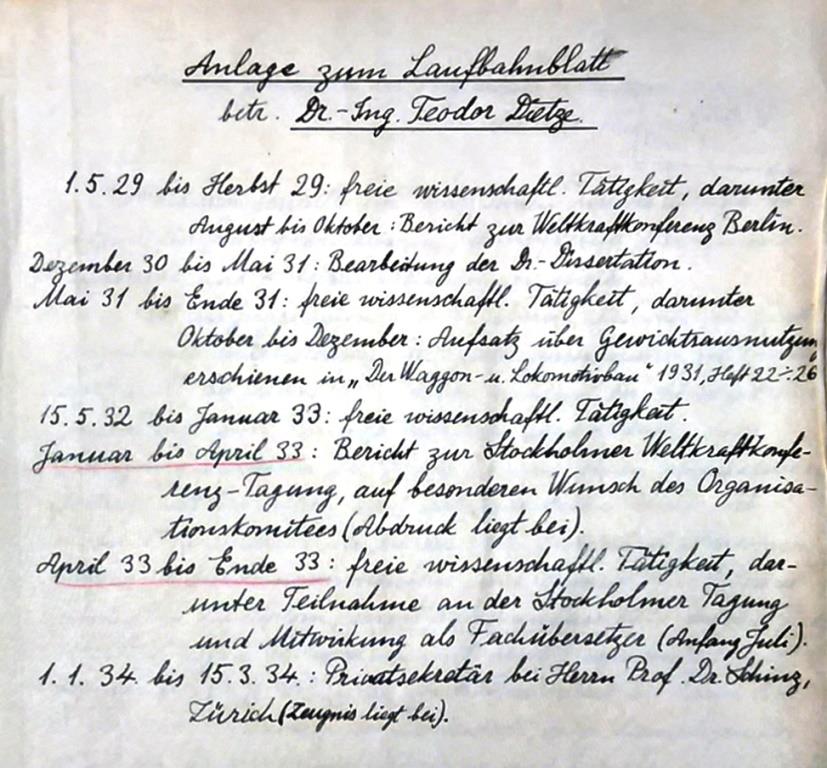 Anlage zum Laufbahnblatt
betr. Dr.-Ing. Teodor Dietze.
1.5.29 bis Herbst 29: freie wissenschaftl. Tätigkeit, darunter
August bis Oktober: Bericht zur Weltkraftkonferenz Berlin.
Dezember 30 bis Mai 31: Bearbeitung der Dr.-Dissertation.
Mai 31 bis Ende 31: freie wissenschaftl. Tätigkeit, darunter
Oktober bis Dezember: Aufsatz über Gewichtsausnutzung,
erschienen in „Der Waggon- u. Lokomotivbau" 1931, Heft 22÷26
15.5.32 bis Januar 33: freie wissenschaftl. Tätigkeit.
Januar bis April 33: Bericht zur Stockholmer Weltkraftkonfe-
renz-Tagung, auf besonderen Wunsch des Organisa-
tionskomitees (Abdruck liegt bei).
April 33 bis Ende 33: freie wissenschaftl. Tätigkeit, dar-
unter Teilnahme an der Stockholmer Tagung
und Mitwirkung als Fachübersetzer (Anfang Juli).
1.1.34. bis 15.3.34.: Privatsekretär bei Herrn Prof. Dr. Schinz,
Zürich (Zeugnis liegt bei).